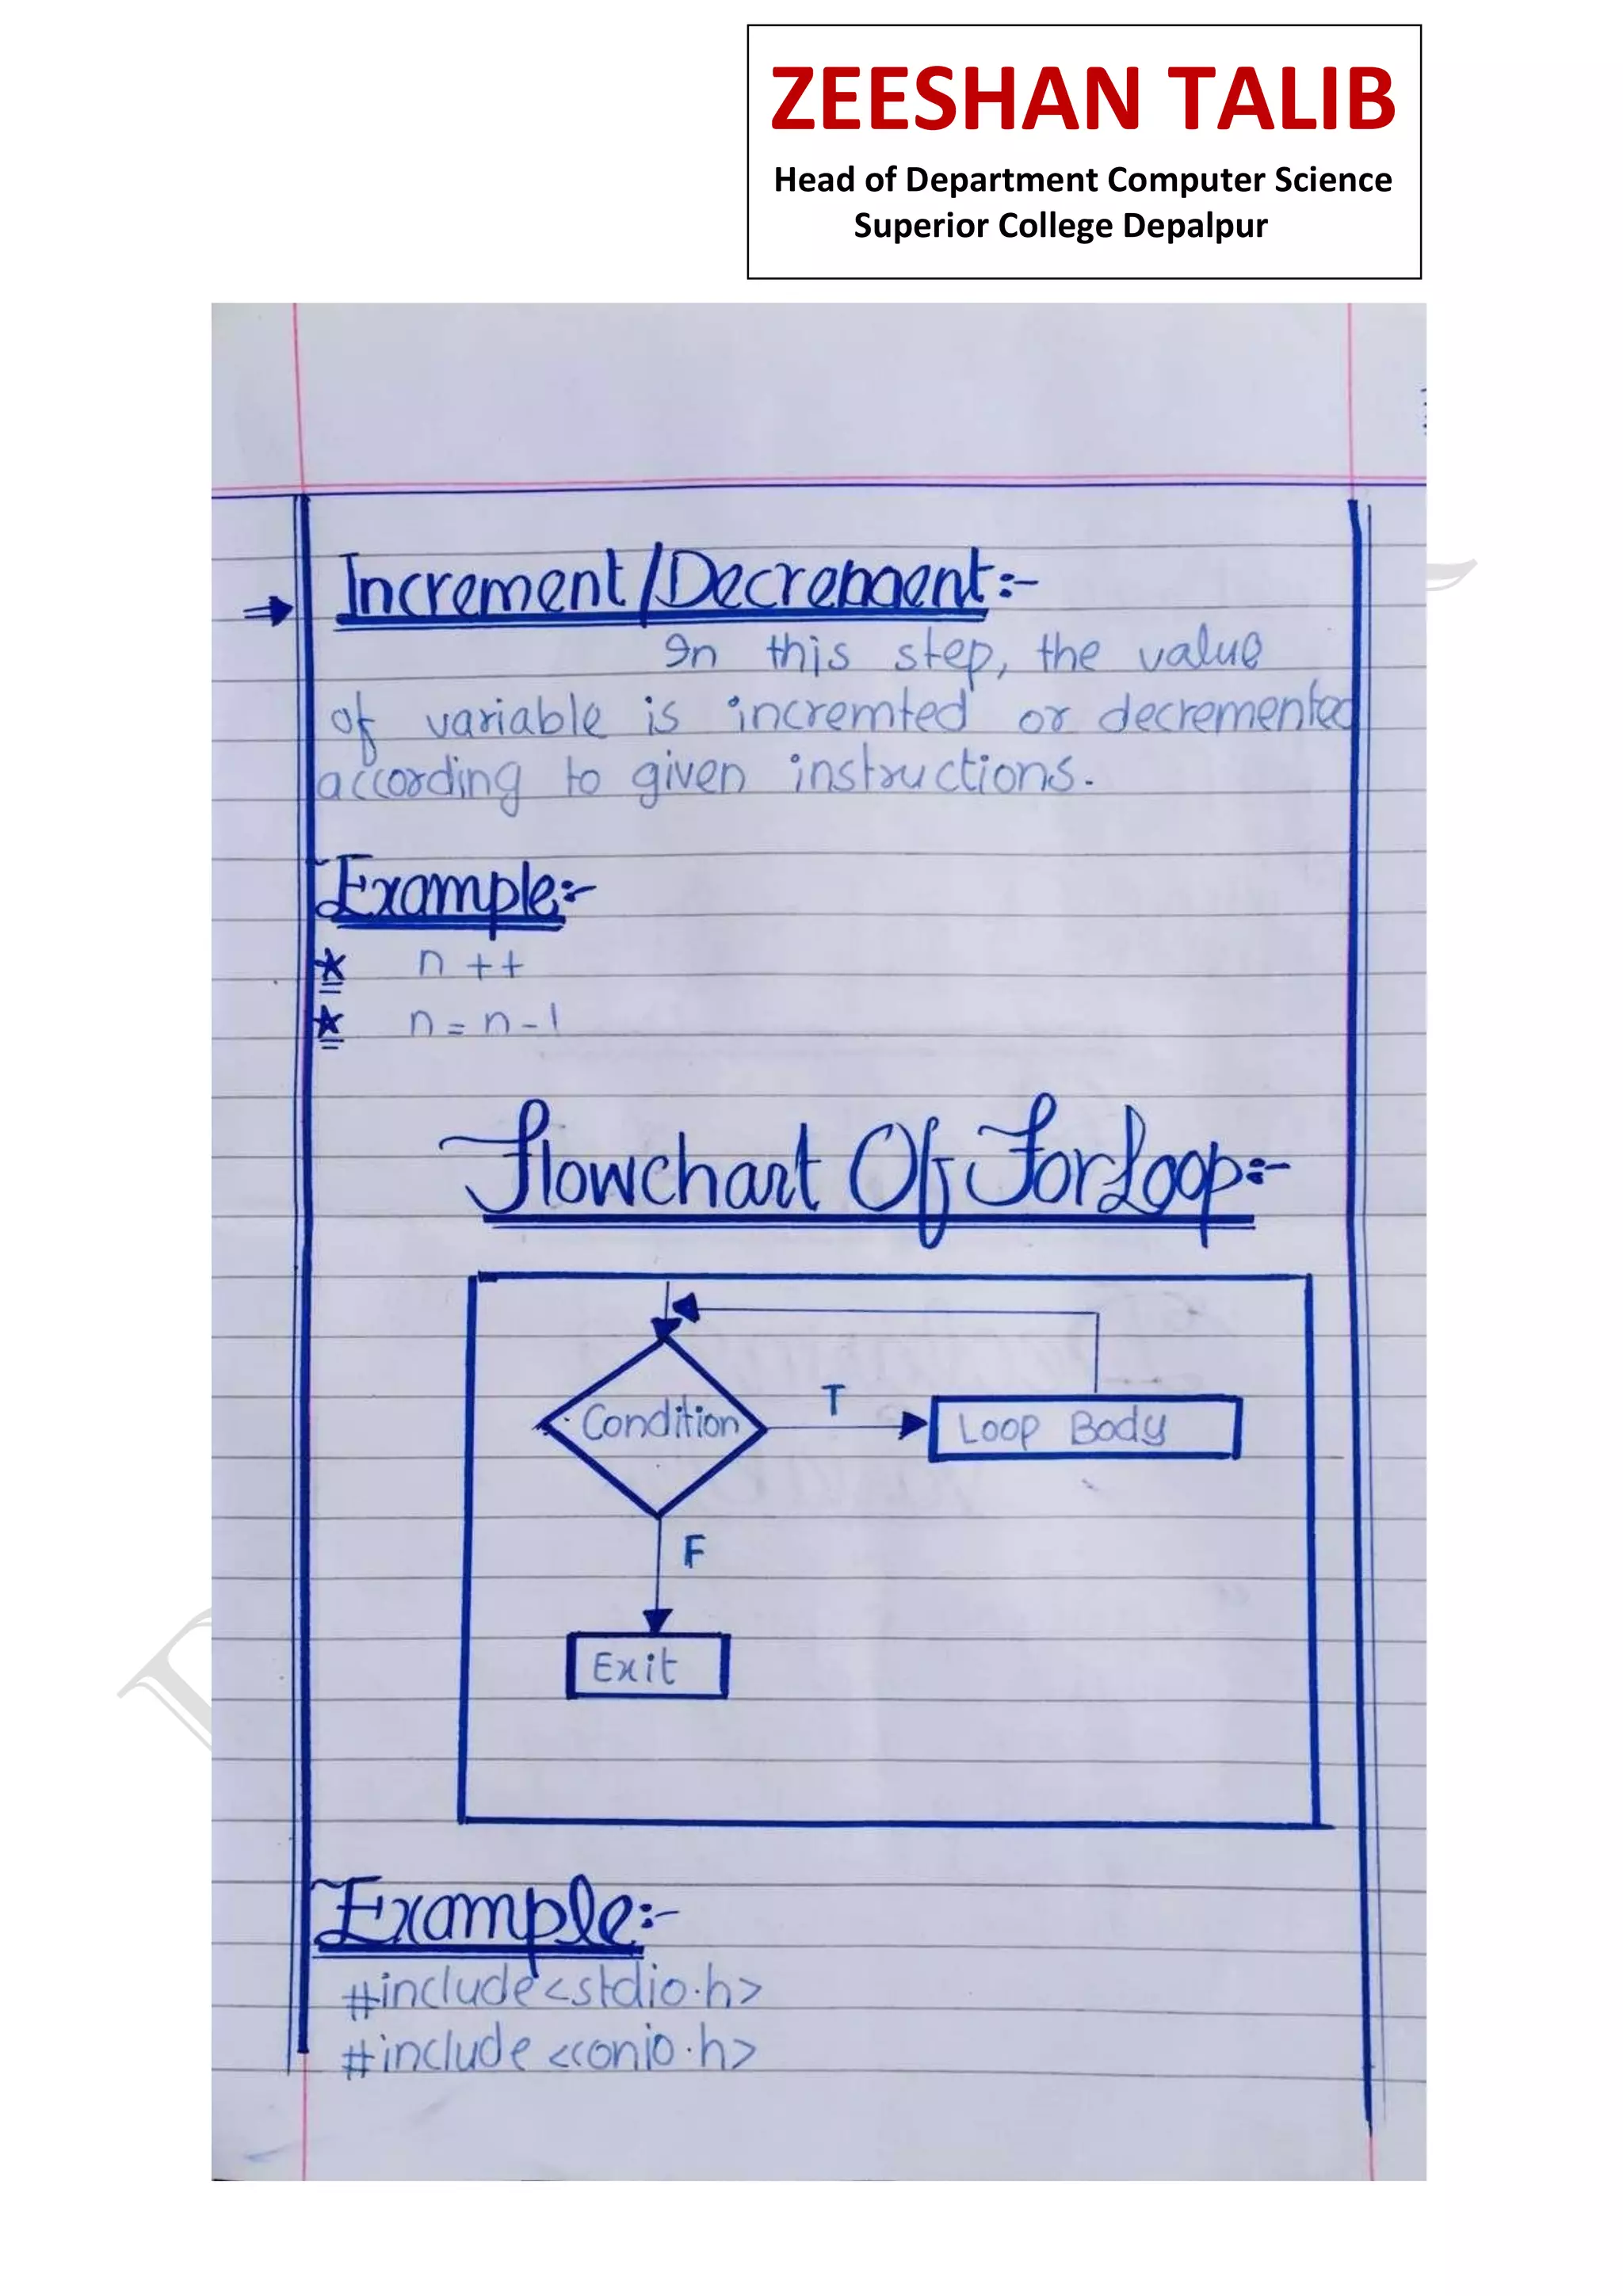 ZEESHAN TALIB
Head of Department Computer Science
Superior College Depalpur
⇒ Increment/Decrement:-
In this step, the value
of variable is incremted or decremented
according to given instructions.
Example:-
* n ++
* n = n - 1
Flowchart Of For Loop:-
Condition
T
Loop Body
F
Exit
Example:-
#include<stdio.h>
#include<conio.h>